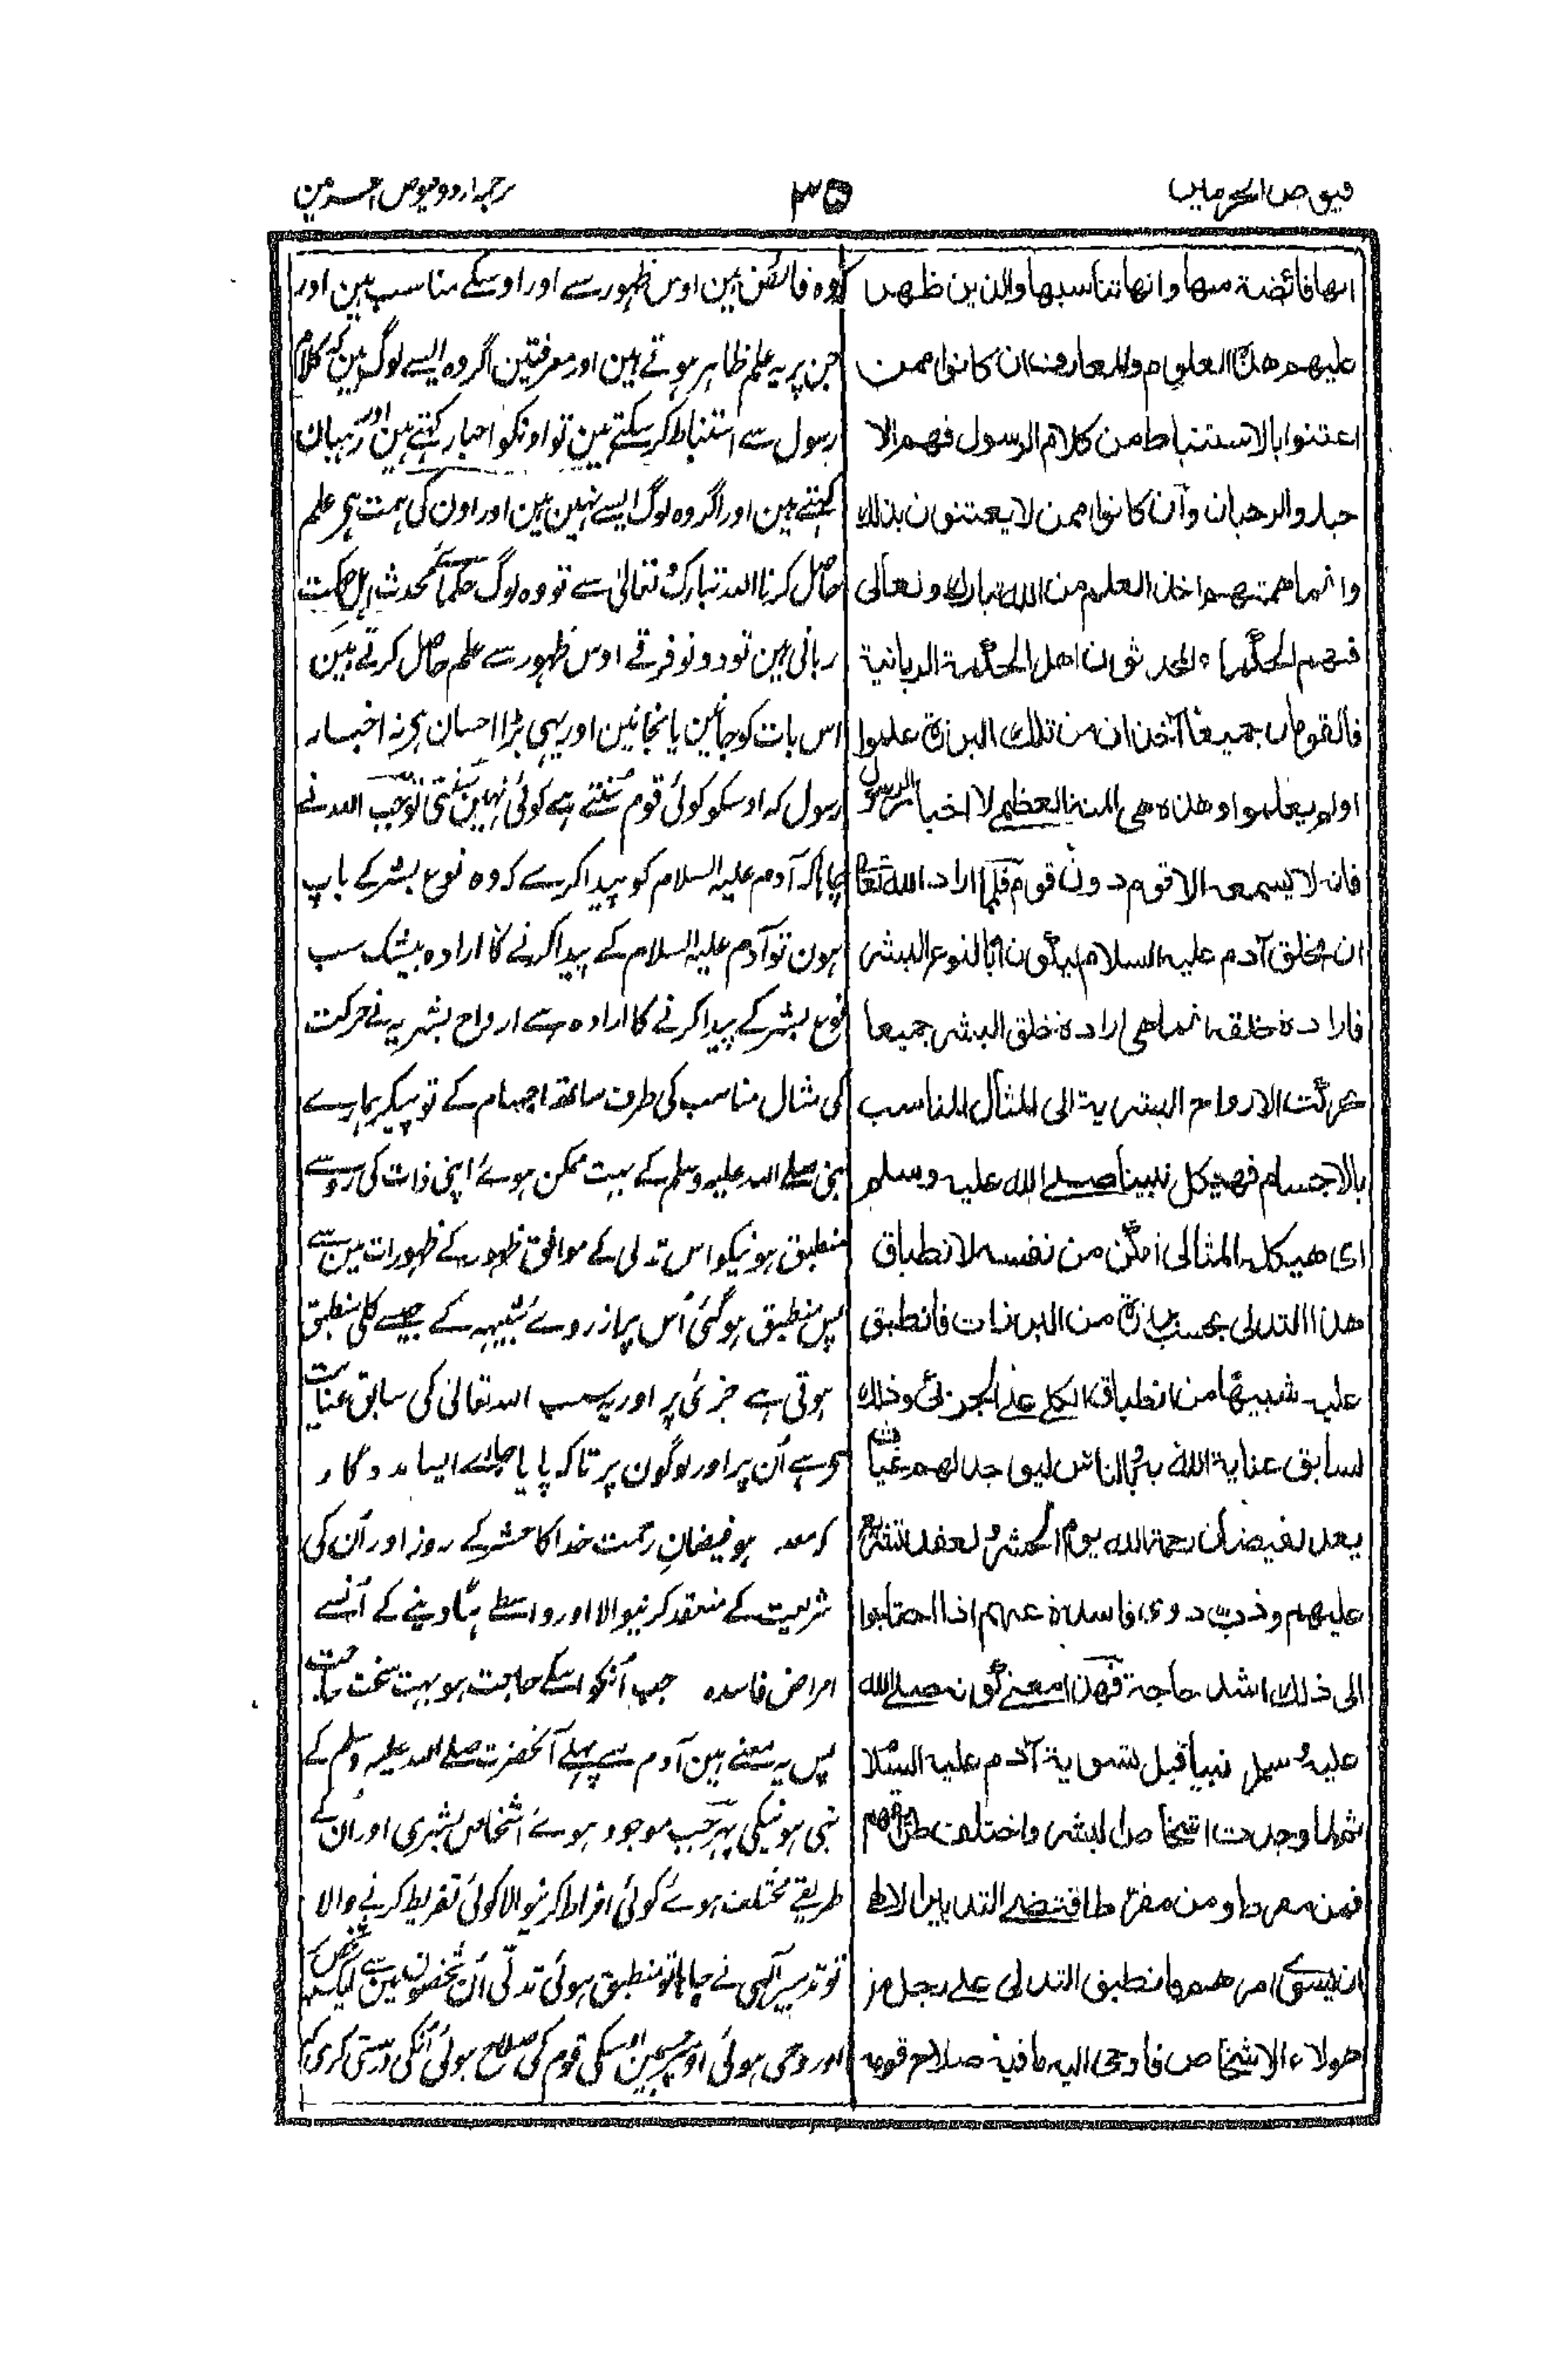 فیوض الحرمین
۳۵
ترجمہ اردو فیوض الحرمین
انها فائضة منها وانها تناسبها والذين ظهر
عليهم هذه العلوم والمعارف ان كانوا ممن
اعتنوا بالاستنباط من كلام الرسول فهم الا
حبار والرهبان وان كانوا ممن لا يعتنون بذلك
وانما همتهم اخذ العلم من الله تبارك وتعالى
فهم الحكماء المحدثون اهل الحكمة الربانية
فالقومان جميعا آخذان من تلك البرزة علموا
اولم يعلموا وهذه هي المنة العظمى لا اخبار الرسول
فانه لا يسمعه الا قوم دون قوم فلما اراد الله تعا
ان يخلق آدم عليه السلام ليكون ابا لنوع البشر
فارادة خلقه انما هي ارادة خلق البشر جميعا
تحركت الارواح البشرية الى المثال المناسب
بالاجسام فهيكل نبينا صلے الله عليه وسلم
اى هيكله المثالى امكن من نفسه لانطباق
هذا التدلى بحسب برزة من البرزات فانطبق
عليه شبيها من انطباق الكلے علے الجزئى وذلك
لسابق عناية الله به وبالناس ليوجد لهم غياث
يعد لفيضان رحمة الله يوم الحشر
عليهم وذب فاسدة عنهم اذا احتاجوا
الى ذلك اشد حاجة فهذا معنے كونه صلے الله
عليه وسلم نبيا قبل تسوية آدم عليه السلا
ثم لما وجدت اشخاص البشر واختلفت طرقهم
فمن مفرط ومن مفرط اقتضے التدبير الالٰه
ان يسوى امرهم وانطبق التدلى علے رجل من
هولاء الاشخاص فاوحى اليه ما فيه صلاح قومه
کہ وہ فائض ہین اوس ظہور سے اور اوسکے مناسب ہین اور
جن پر یہ علم ظاہر ہوتے ہین اور معرفتین اگر وہ ایسے لوگ ہین کہ کلام
رسول سے استنباط کر سکتے ہین تو اونکو احبار کہتے ہین اور رہبان
کہتے ہین اور اگر وہ لوگ ایسے نہین ہین اور اون کی ہمت ہی علم
حاصل کرنا اللہ تبارک تعالیٰ سے تو وہ لوگ حکمائے محدث اہل حکمت
ربانی ہین تو دونو فرقے اوس ظہور سے علم حاصل کرتے ہین
اس بات کو جانین یا نجانین اور یہی بڑا احسان ہی نہ اخبار
رسول کہ اوسکو کوئی قوم سُنتے ہے کوئی نہین سُنتی تو جب اللہ نے
چاہا کہ آدم علیہ السلام کو پیدا کرے کہ وہ نوع بشر کے باپ
ہون تو آدم علیہ السلام کے پیدا کرنے کا ارادہ بیشک سب
نوع بشر کے پیدا کرنے کا ارادہ ہے ارواح بشریہ نے حرکت
کی مثال مناسب کی طرف ساتھ اجسام کے تو پیکر ہمارے
نبی صلے اللہ علیہ وسلم کے بہت ممکن ہوئے اپنی ذات کی رو سے
منطبق ہونیکو اس تدلی کے موافق ظہور کے ظہورات مین سے
پس منطبق ہو گئی اُس پر از روے شبیہہ کے جیسے کلی منطبق
ہوتی ہے جزئی پر اور یہ سبب اللہ تعالیٰ کی سابق عنایت
ہی ہے اُن پر اور لوگون پر تاکہ پایا جاے ایسا مددگار
کہ معد ہو فیضانِ رحمت خدا کا حشر کے روز اور اُن کی
شریعت کے منعقد کرنیوالا اور واسطے ہٹا دینے کے اُنسے
امراض فاسدہ جب اُنکو اسکے حاجت ہو بہت سخت حاجت
پس یہ معنے ہین آدم سے پہلے آنحضرت صلے اللہ علیہ وسلم کے
نبی ہونیکی پہر جب موجود ہوے اشخاص بشری اور اُن کے
طریقے مختلف ہوے کوئی افراط کرنیوالا کوئی تفریط کرنے والا
تو تدبیر آلہی نے چاہا تو منطبق ہوئی تدلّی اُن شخصون مین سے ایک شخص پر
اور وحی ہوئی اوسپر جسمین اسکی قوم کی صلاح ہوئی اُنکی درستی کری